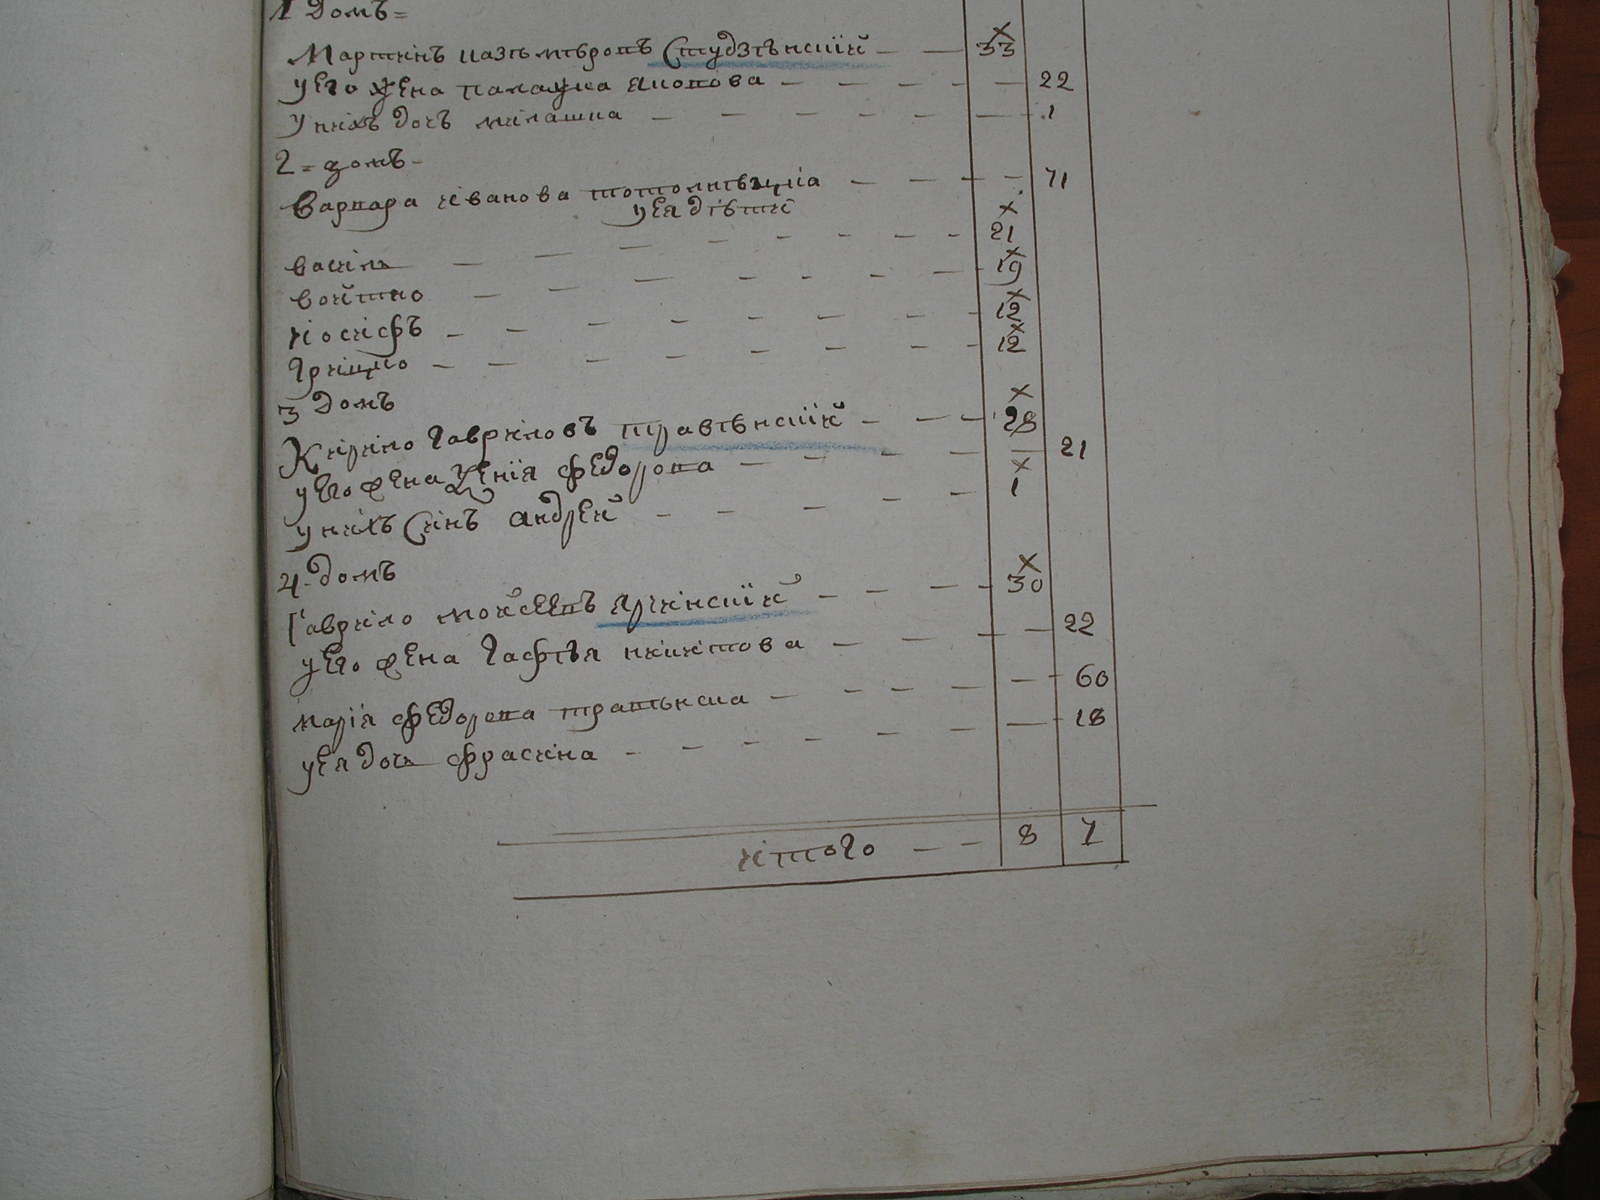 1 домъ =
Мартинъ казѣмѣровъ Студзѣнскій — — 33
у его жена палажка якопова — — — — — 22
у нихъ дочъ малашка — — — — — 1
2 = домъ -
Варвара иванова — — — 71
у ея дѣти
василь — — — — — — — 21
войтко — — — — — — 19
іосифъ — — — — — — — 12
грицко — — — — — — — 12
3 домъ
Кирило гавриловъ травѣнскій — — — 28
у его жена ѯенія федорова — — — — 21
у нихъ синъ андрей — — — — — 1
4 домъ
Гавріло мойсеевъ яринскій — — — — 30
у его жена гафѣя никитова — — — — 22
марія федорова травѣнска — — — — — 60
у ея дочь фрасина — — — — — — — 18
итого — — 8 7